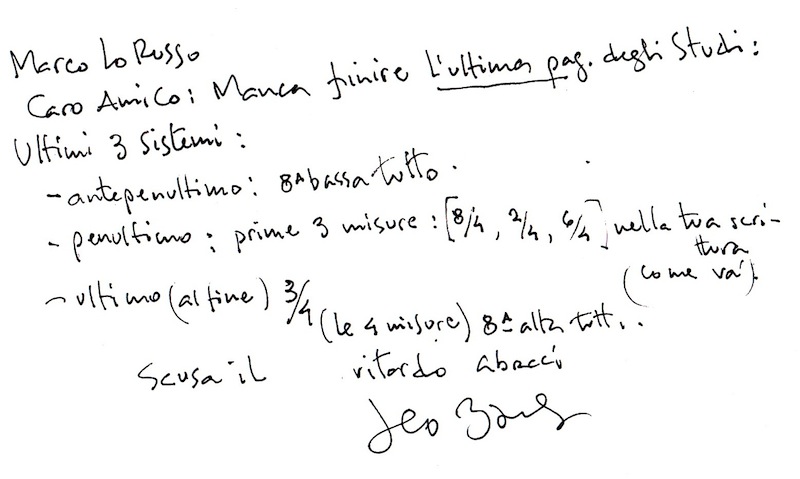 Marco Lo Russo
Caro Amico: Manca finire l'ultima pag. degli Studi:
Ultimi 3 sistemi:
- antepenultimo: 8ª bassa tutto.
- penultimo: prime 3 misure: [8/4, 2/4, 6/4] nella tua scri-
ttura
(come va).
- ultimo (al fine) 3/4 (le 4 misure) 8ª alta tutt..
Scusa il ritardo abracci